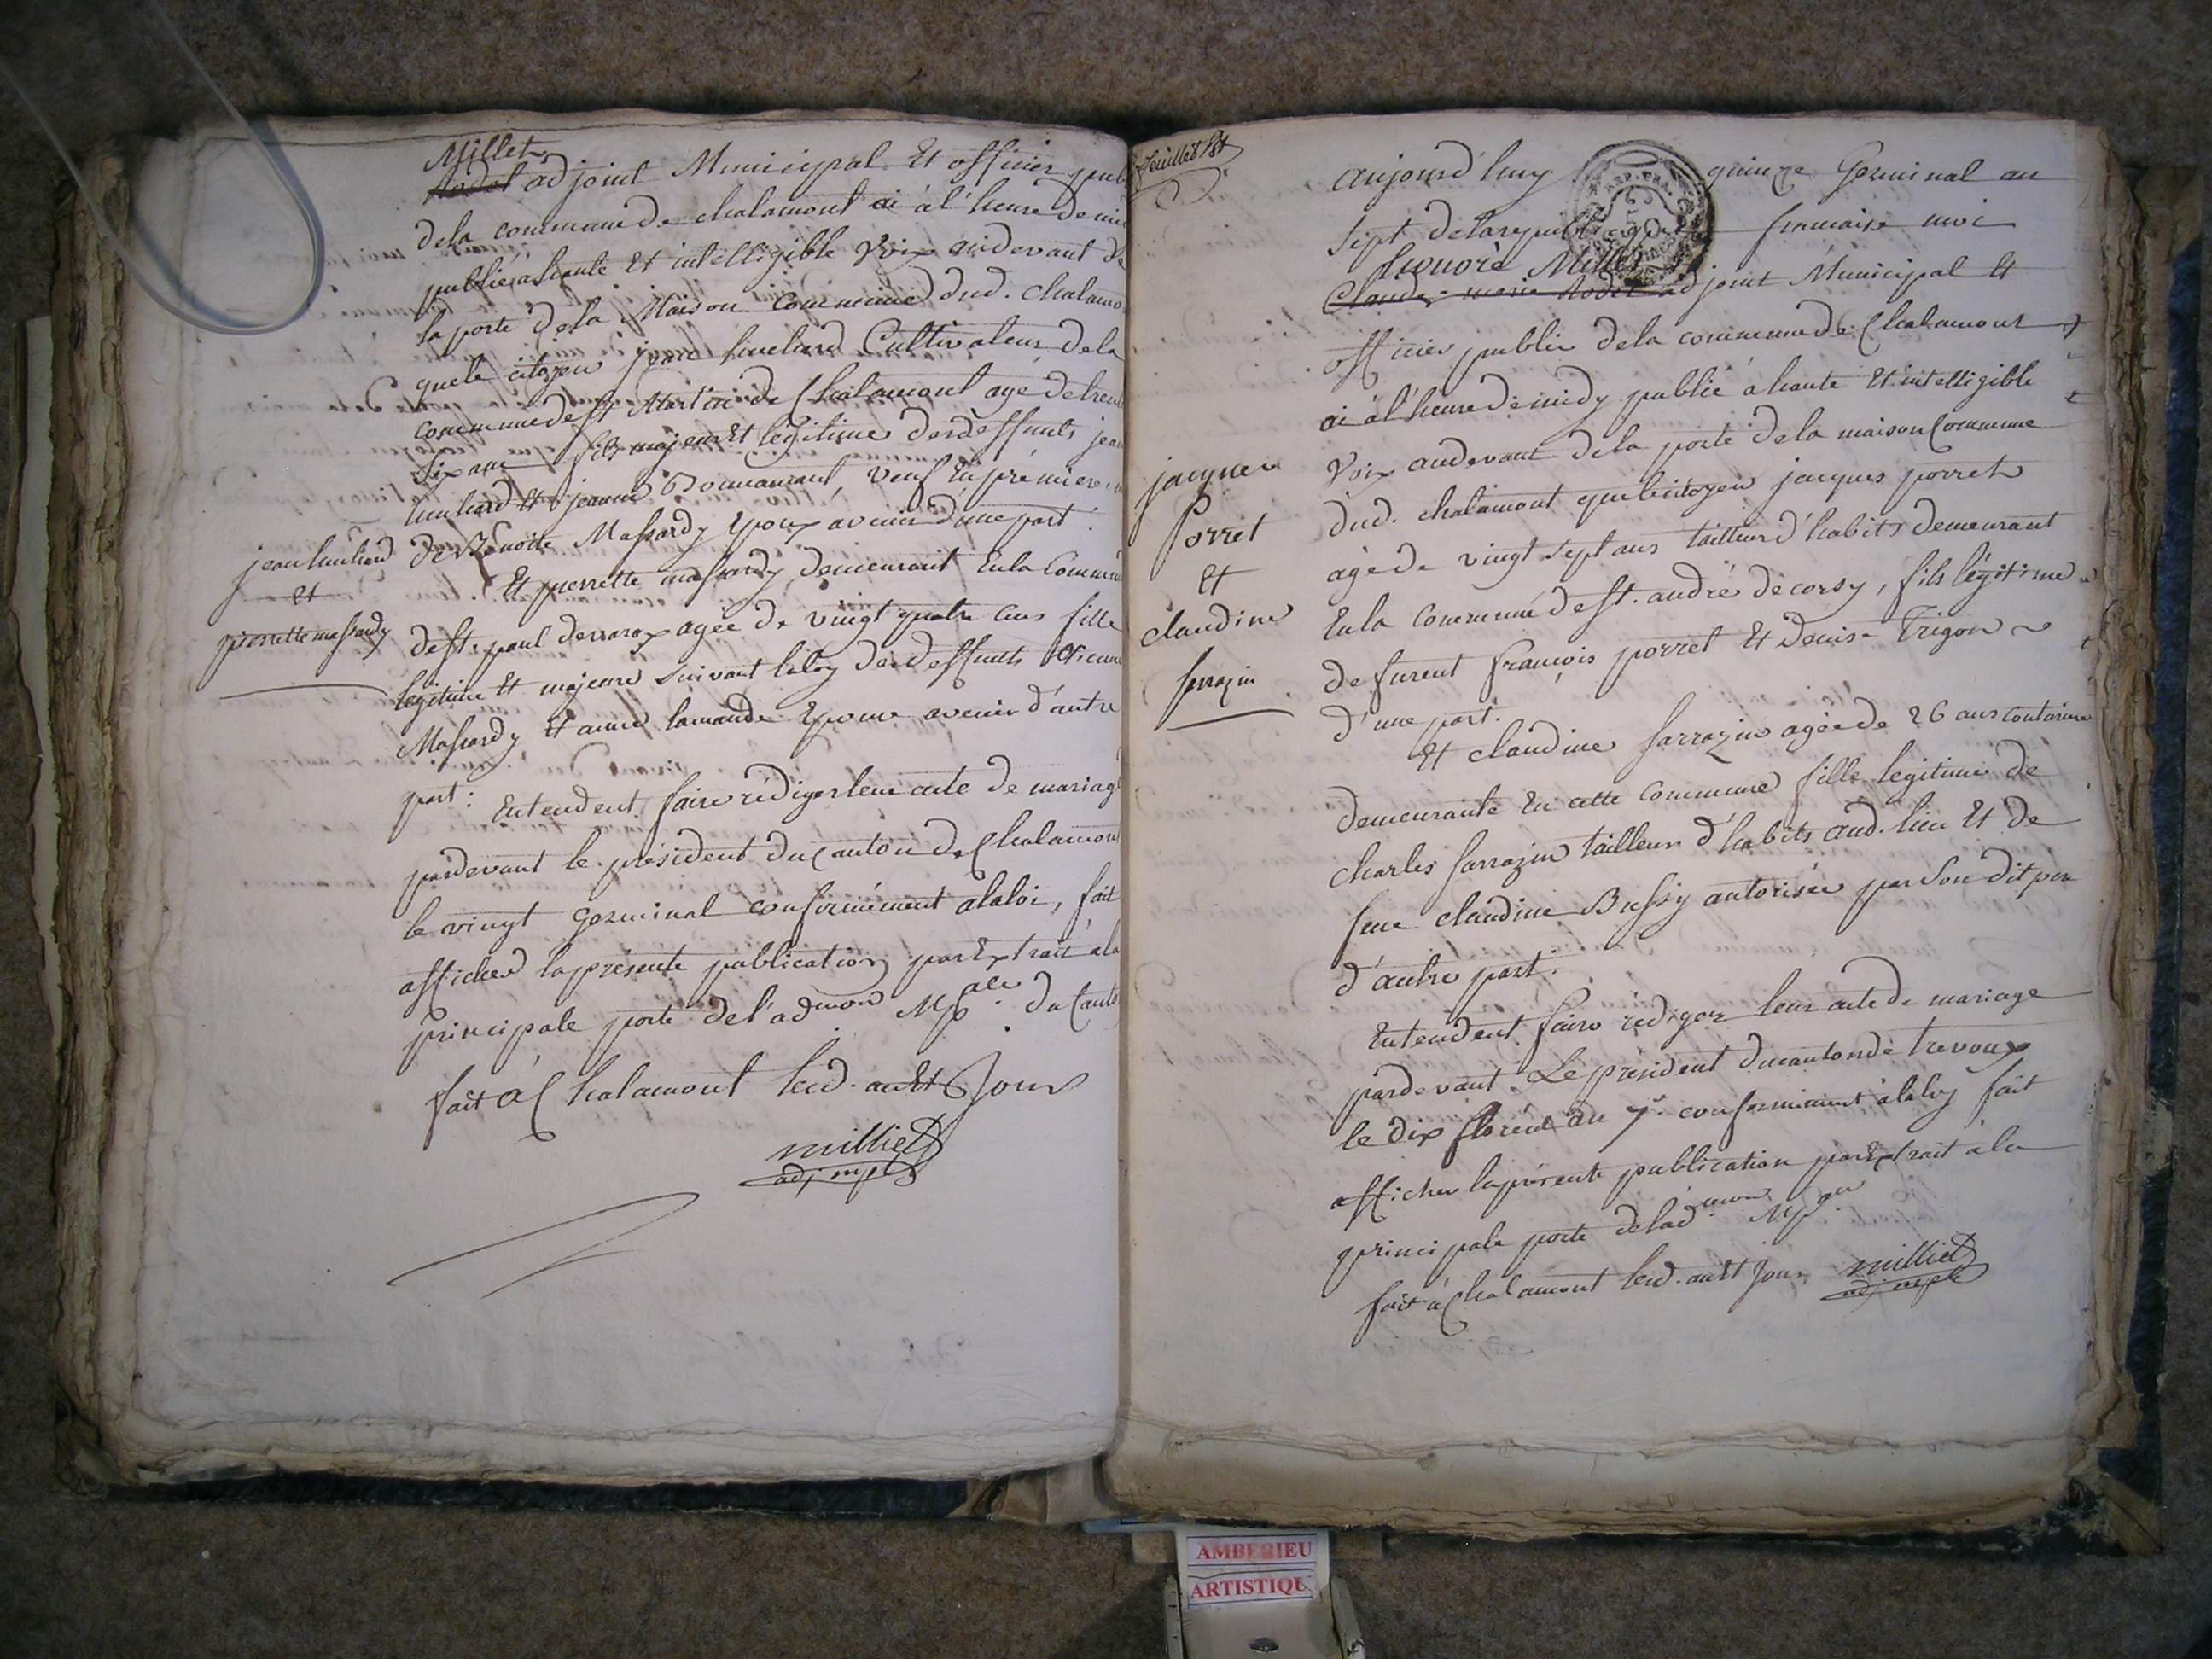 Millet
adjoint Municipal Et officier pub
dela commune de chalamont ai à l'heure de mid
publié a haute Et intelligible Voix audevant de
la porte dela Maison Commune dud. chalamo
que le citoyen jean Cultivateur dela
commune de St Martin de Chalamont agé de trent
six ans fils majeur Et legitime des deffunts jean
Et jeanne veuf En premiere
de Benoite Massardy Epoux avenir d'une part.
jean
et
pierrette massardy
Et pierrette massardy demeurant En la Commun
de St. paul devarax agée de vingt quatre ans fille
legitime Et majeure suivant la loy des deffunts Etienne
Massardy et anne lamande Epouse avenir d'autre
part:
Entendent faire rédiger leur acte de mariage
pardevant le président du Canton de Chalamont
le vingt Germinal conformément a la loi, fait
afficher la présente publication par Extrait à la
principale porte de l'admon Mpale. du Canto
fait à Chalamont lesd. an Et Jour
milliet
adj. mpl
feuillet
aujourd'huy quinze Germinal an
sept de la republique francaise moi
honoré Millet
Claude marie Rodet adjoint Municipal Et
officier public dela commune de Chalamont
ai à l'heure de midy publié à haute Et intelligible
Voix audevant dela porte dela maison Commune
dud. chalamont que le citoyen jacques porret
agé de vingt sept ans tailleur d'habits demeurant
En la Commune de St. andré de corsy, fils légitime
de furent françois porret Et Denise Trigon
d'une part.
jacques
Porret
Et
claudine
sarrazin
Et claudine sarrazin agée de 26 ans couturiere
demeurante En cette Commune fille legitime de
charles sarrazin tailleur d'habits aud. lieu Et de
feue claudine Bussy autorisée par son dit pere
d'autre part.
Entendent faire rédiger leur acte de mariage
pardevant Le président du canton de trevoux
le dix floréal an 7e. conformément à la loy fait
afficher la présente publication par Extrait à la
principale porte de l'admon Mpale
fait à Chalamont lesd. an Et Jour
milliet
adj. mpl
AMBERIEU
ARTISTIQU